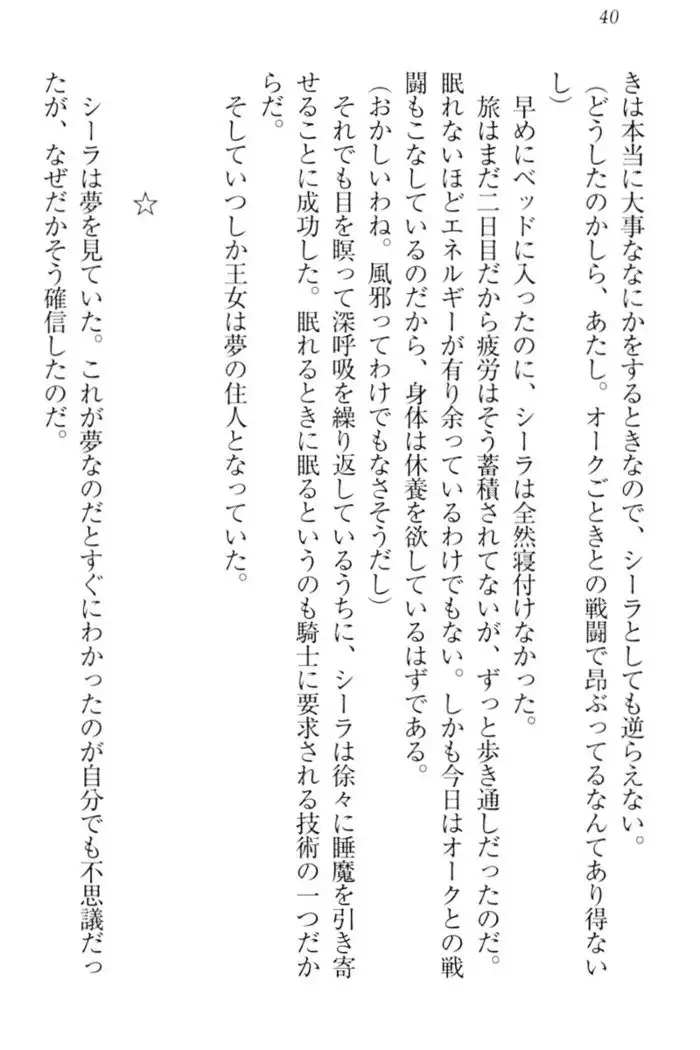 40
きは本当に大事ななにかをするときなので、シーラとしても逆らえない。
(どうしたのかしら、あたし。オークごときとの戦闘で昂ぶってるなんてあり得ない
し)
早めにベッドに入ったのに、シーラは全然寝付けなかった。
旅はまだ二日目だから疲労はそう蓄積されてないが、ずっと歩き通しだったのだ。
眠れないほどエネルギーが有り余っているわけでもない。しかも今日はオークとの戦
闘もこなしているのだから、身体は休養を欲しているはずである。
(おかしいわね。風邪ってわけでもなさそうだし)
それでも目を瞑って深呼吸を繰り返しているうちに、シーラは徐々に睡魔を引き寄
せることに成功した。眠れるときに眠るというのも騎士に要求される技術の一つだか
らだ。
そしていつしか王女は夢の住人となっていた。
☆
シーラは夢を見ていた。これが夢なのだとすぐにわかったのが自分でも不思議だっ
たが、なぜだかそう確信したのだ。